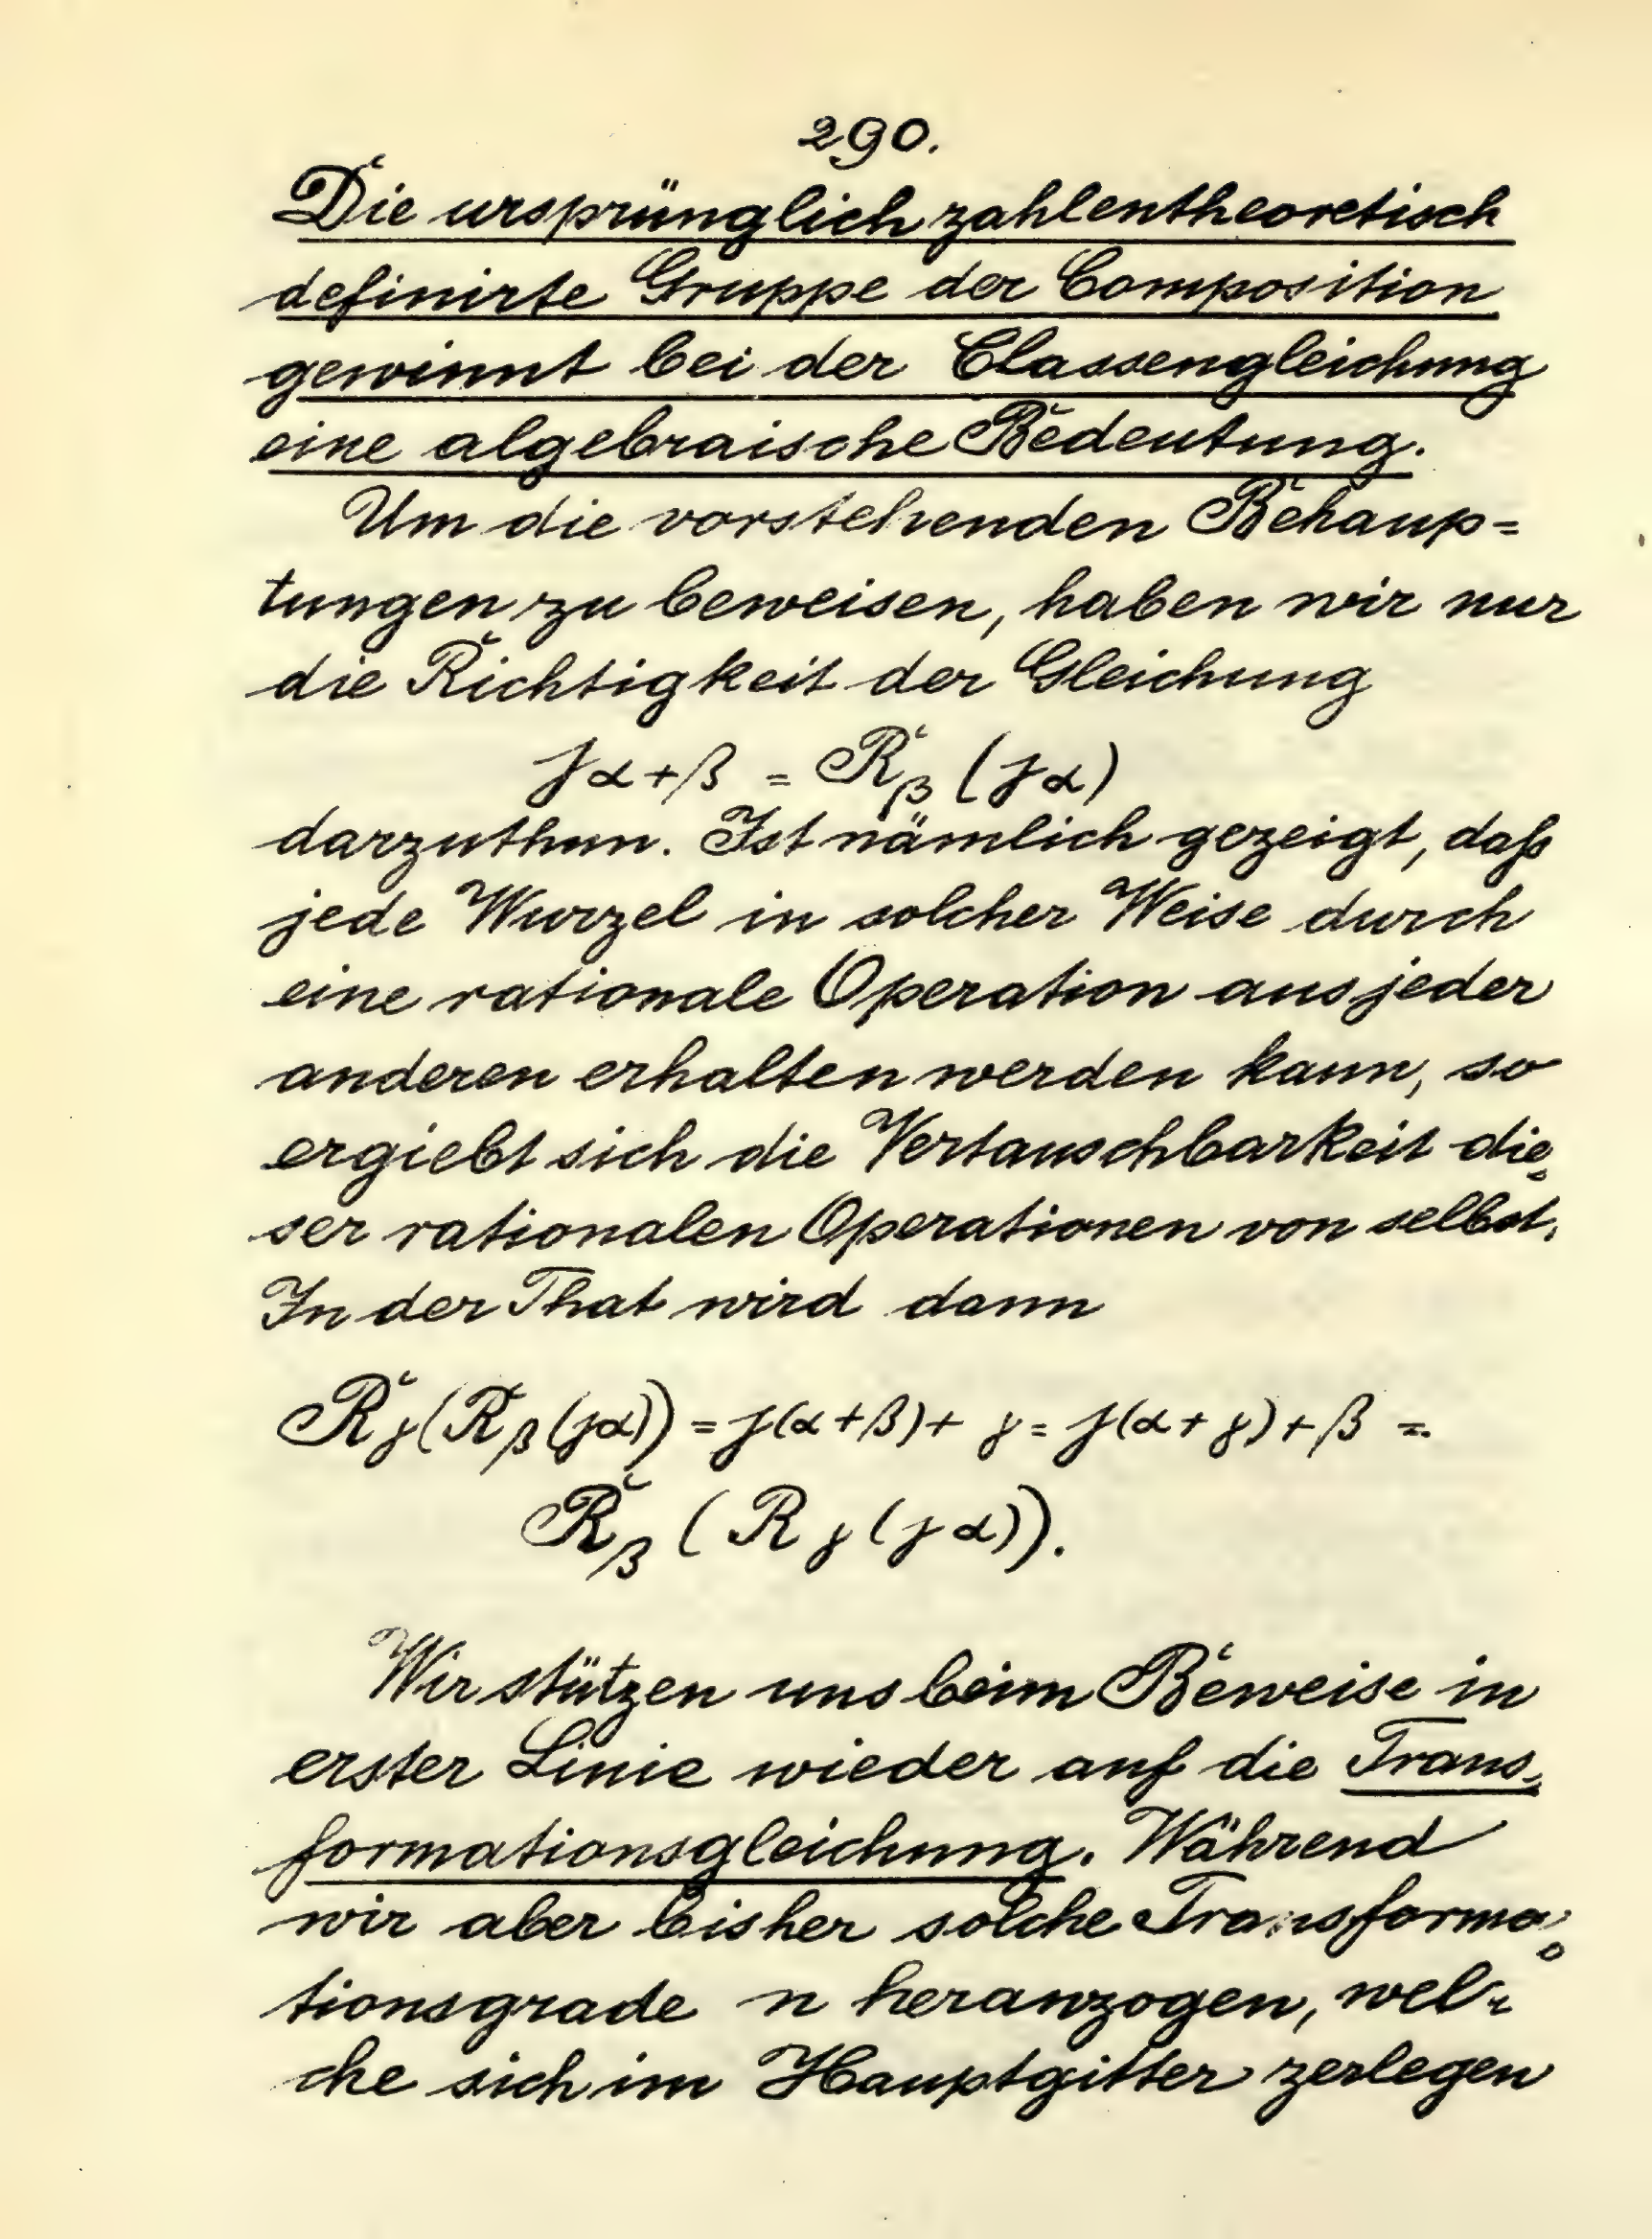 290.
Die ursprünglich zahlentheoretisch
definirte Gruppe der Composition
gewinnt bei der Classengleichung
eine algebraische Bedeutung.
Um die vorstehenden Behaup=
tungen zu beweisen, haben wir nur
die Richtigkeit der Gleichung
jα+β = Rβ (jα)
darzuthun. Ist nämlich gezeigt, daß
jede Wurzel in solcher Weise durch
eine rationale Operation aus jeder
anderen erhalten werden kann, so
ergiebt sich die Vertauschbarkeit die=
ser rationalen Operationen von selbst.
In der That wird dann
Rγ(Rβ(jα)) = j(α+β)+ γ = j(α+γ)+β =
Rβ (Rγ(jα)).
Wir stützen uns beim Beweise in
erster Linie wieder auf die Trans=
formationsgleichung. Während
wir aber bisher solche Transforma=
tionsgrade n heranzogen, wel=
che sich im Hauptgitter zerlegen